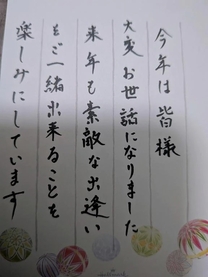 今年は皆様
大変お世話になりました
来年も素敵な出逢い
をご一緒出来ることを
楽しみにしています